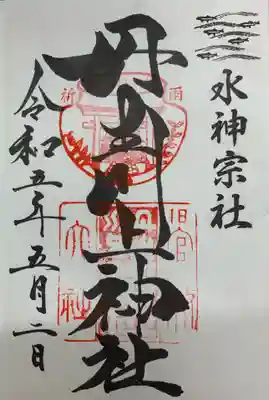 水神宗社
丹生川上神社
令和五年五月二日
祈雨